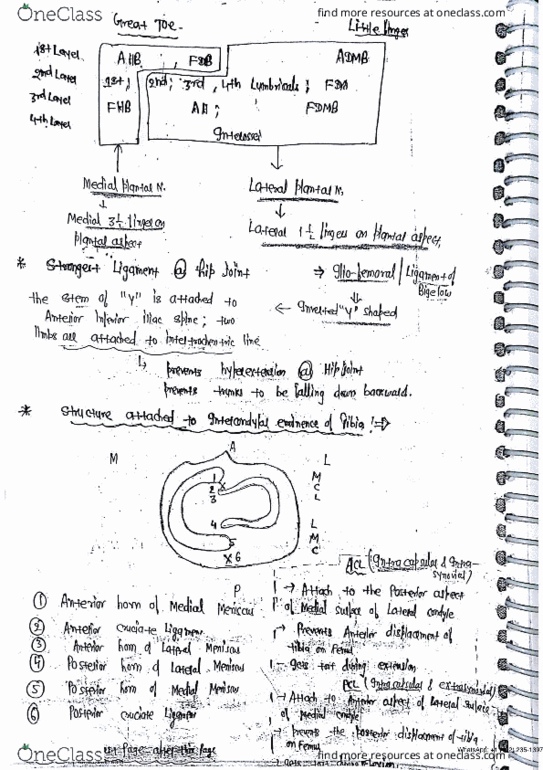 OneClass
find more resources at oneclass.com
find more resources at oneclass.com
Great Toe.
Little finger
1st Level
AHB , FDB
ADMB
2nd Level
1st; 2nd; 3rd , 4th Lumbricals ;
3rd Level
FHB
AH ;
FDMB
4th Level
Interossei
Medial Plantar N.
Lateral Plantar N.
Medial 3½ fingers on
plantar aspect
Lateral 1½ fingers on plantar aspect
* Strongest Ligament @ Hip Joint
→ Ilio-femoral / Ligament of
Bigelow
the stem of "Y" is attached to
← Inverted "Y" shaped
Anterior Inferior iliac spine; two
limbs are attached to intertrochentric line
prevents hyperextension @ Hip Joint
prevents trunks to be falling down backward.
* Structure attached to Intercondylar eminence of tibia !⇒
A
M
L
1
2
3
4
5
X 6
M
C
L
L
M
C
P
ACL (Intracapsular & Intra-
synovial)
① Anterior horn of Medial Meniscus
→ Attach to the Posterior aspect
of Medial surface of Lateral condyle
② Anterior cruciate Ligament
→ Prevents Anterior displacement of
tibia on Femur
③ Anterior horn of Lateral Meniscus
- gets taut during extension
④ Posterior horn of Lateral Meniscus
PCL (Intracapsular & extrasynovial)
⑤ Posterior horn of Medial Meniscus
→ Attach to Anterior aspect of Lateral surface
of medial condyle
⑥ Posterior cruciate Ligament
→ Prevents the posterior displacement of tibia
on Femur
Page after this page
OneClass
find more resources at oneclass.com
find more resources at oneclass.com